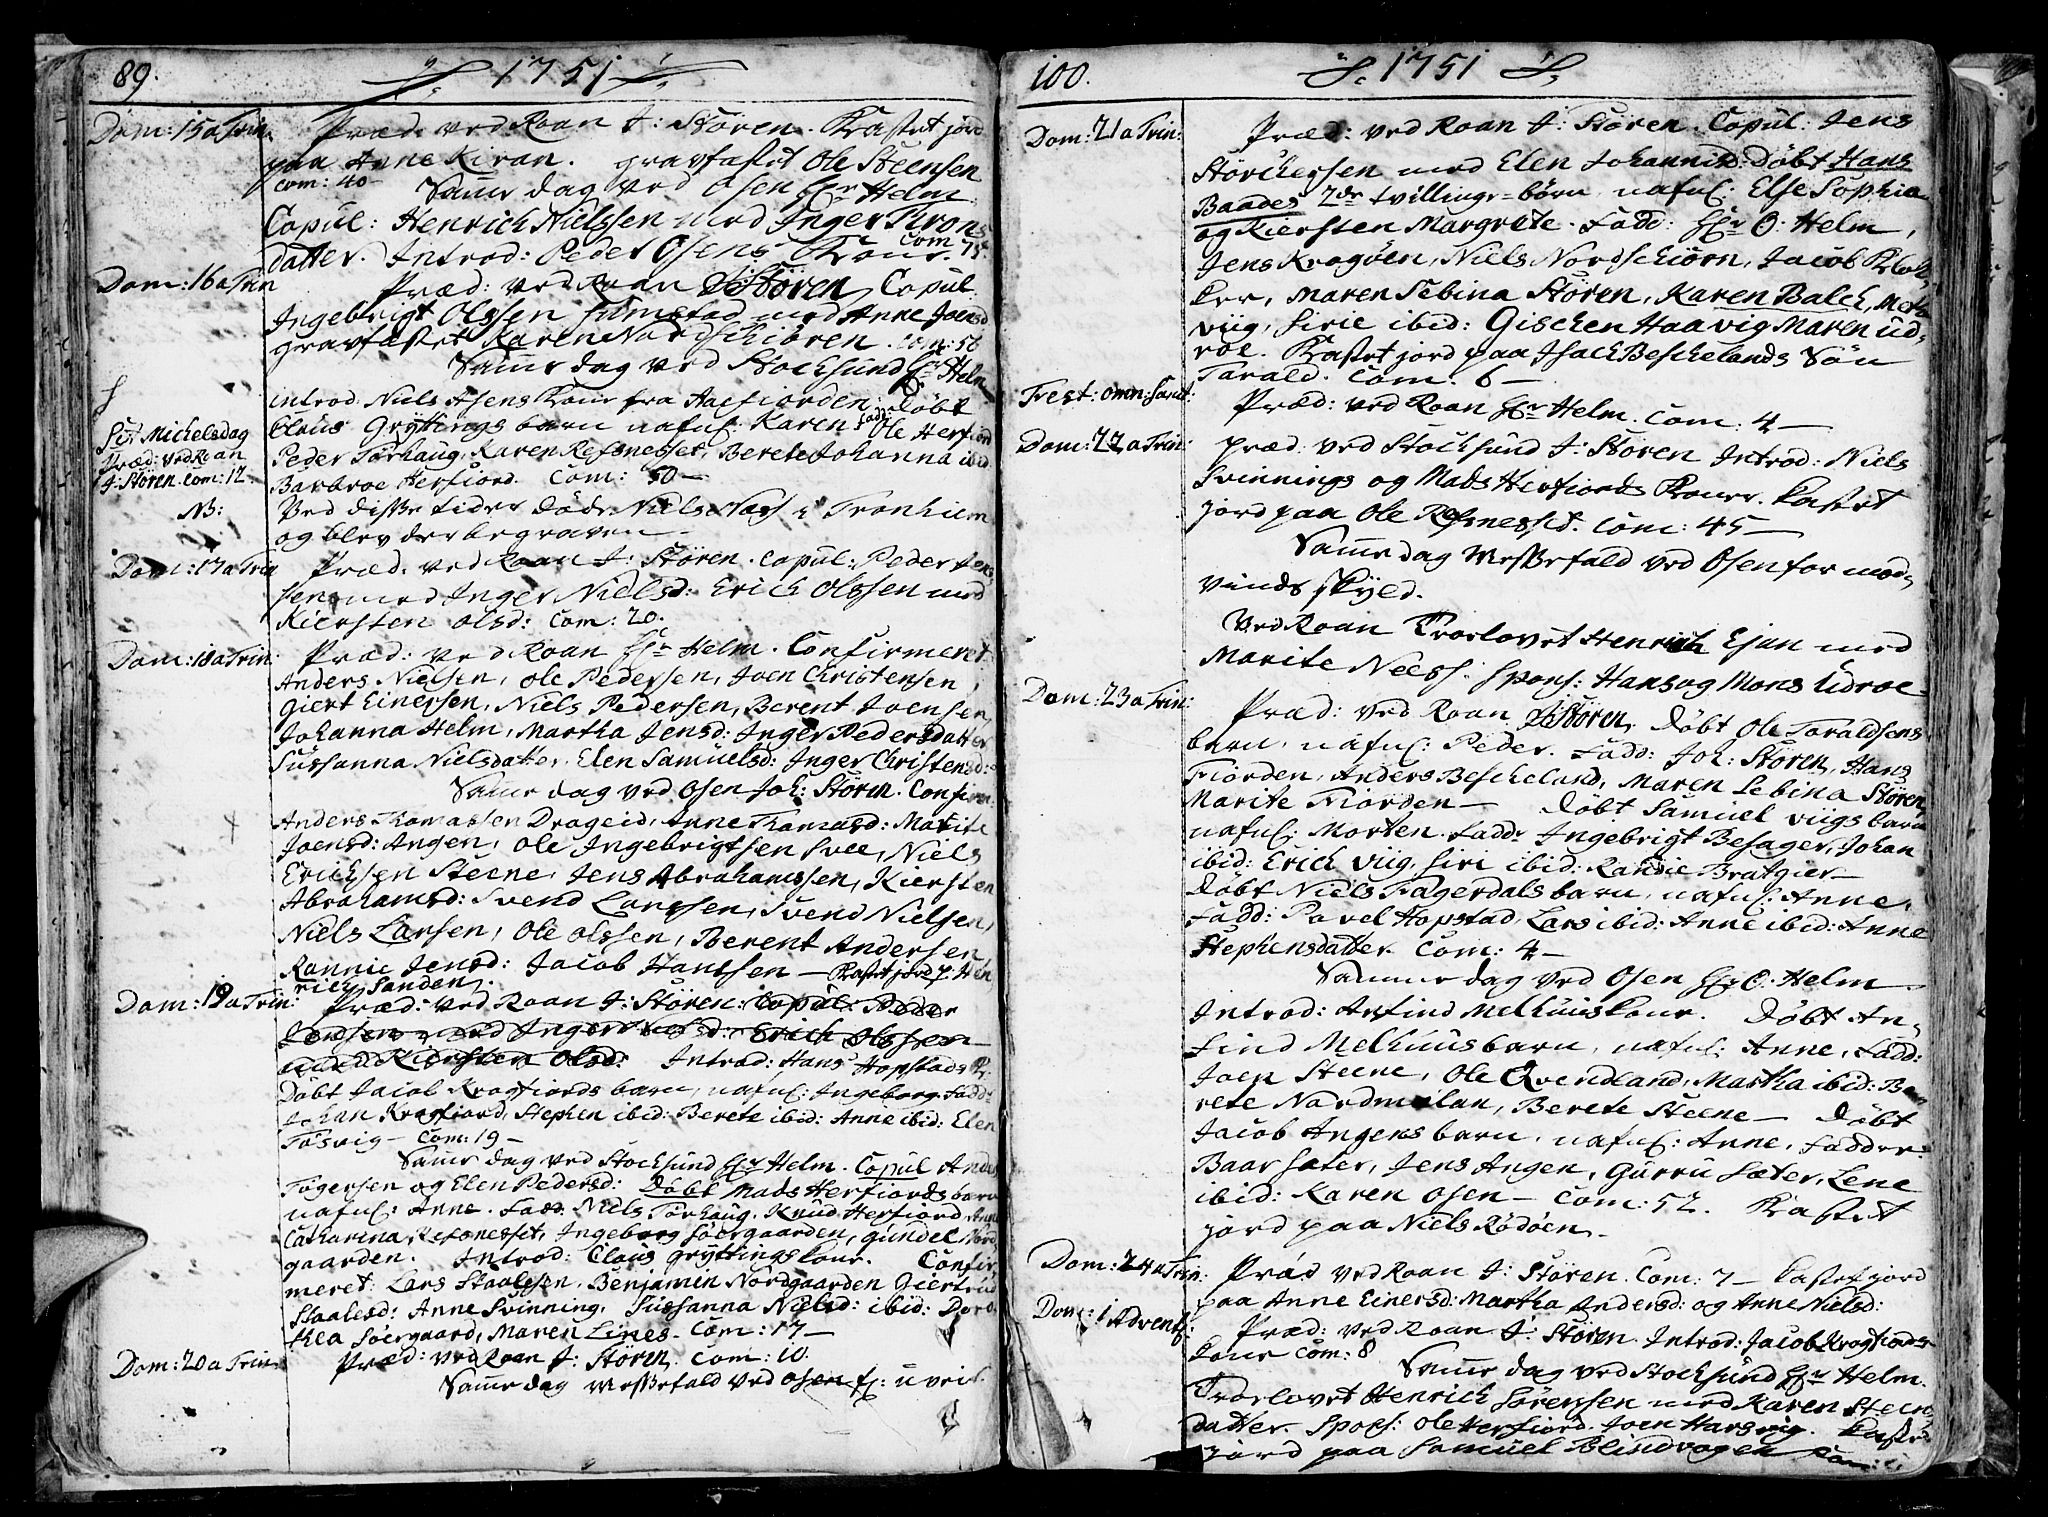 89.
1751
Dom: 15 a Trin.
Præd: ved Roan J: Stören. Kastet jord
paa Anne Kiran. gravfæstet Ole Steensen
Com: 40
Samme dag ved Osen Hr Helm
Copul: Henrich Nielssen med Inger Krons
datter. Introd: Peder Osens Kone. Com 75.
Dom: 16 a Trin
Præd: ved Roan J: Stören Copul:
Ingebrigt Olssen med Anne Joensd
gravfæstet Karen Nordschiören. Com: 56
Samme dag ved Stocksund Hr Helm
introd. Niels Kone fra Döbt
Claus Gryttings barn nafnl: Karen Fadd: Ole Herfiord
Sct Michelsdag
Præd: ved Roan
J: Stören. Com: 12.
Peder Torhaug, Karen Refsnesset, Berete Johanna ibid
Barbroe Herfiord. Com: 50 —
NB:
Ved disse tider döde Niels i Tronhiem
og blev der begraven —
Dom: 17 a Trin
Præd: ved Roan J: Stören. Copul: Peder Jens
sen med Inger Nielsd: Erich Olssen med
Kiersten Olsd: Com: 20.
Dom: 18 a Trin:
Præd: ved Roan Hr Helm. Confirmeret
Anders Nielsen, Ole Pedersen, Joen Christensen,
Giert Einersen, Niels Pedersen, Berent Joensen,
Johanna Helm, Martha Jensd: Inger Pedersdatter
Sussanna Nielsdatter, Elen Samuelsd: Inger Christensd:
Samme dag ved Osen Joh: Stören. Confirm
Anders Thomassen Drageid, Anne Thomasd: Marite
Joensd: Angen, Ole Ingebrigtsen Svee, Niels
Erichsen Steene, Jens Abrahamssen, Kiersten
Abrahamsd: Svend Larssen, Svend Nielsen,
Niels Larsen, Ole Olssen, Berent Andersen
Rannie Jensd: Jacob Hanssen — Kastet jord p: Hen
rich Sanden.
Dom: 19 a Trin:
Præd: ved Roan J: Stören. Copul: Peder
Jensen med Inger Nielsd: Erich Olssen
med Kiersten Olsd: Introd: Hans Hopstads K:
Döbt Jacob Kragfiords barn, nafnl: Ingeborg Fadd:
Johan Kragfiord, Stephen ibid: Berete ibid: Anne ibid: Elen
Tösvig — Com: 19 —
Samme dag ved Stocksund Hr Helm. Copul Ander
Togersen og Elen Pedersd: Döbt Mads Herfiords barn
nafnl: Anne. Fadd. Niels Torhaug, Knud Herfiord, Anne
Catharina Refsnesset, Ingeborg Söergaarden, Gundel Nord
gaarden. Introd: Claus Gryttings kone. Confir
meret: Lars Staalesen, Benjamin Nordgaarden Giertrud
Staalesd: Anne Svinning, Sussanna Nielsd: ibid: Doro
thea Söergaard, Maren Lines. Com: 17 —
Dom: 20 a Trin
Præd: ved Roan J: Stören. Com: 10.
Samme dag Messefald ved Osen f: uveir.
100.
1751
Dom: 21 a Trin:
Præd: ved Roan J: Stören. Copul: Jens
Störchersen med Elen Johannisd: Döbt Hans
Baades 2de tvillinge-börn nafnl: Else Sophia
og Kiersten Margrete. Fadd: Hr O: Helm,
Jens Kragöen, Niels Nordschiörn, Jacob Klok
ker, Maren Sebina Stören, Karen Balch, Mette
Viig, Sirie ibid: Gischen Haavig Maren Ud
roe. Kastet jord paa Isach Beschelands Sön
Tarald. Com: 6 —
Fest: omn: Sanct:
Præd: ved Roan Hr Helm. Com: 4 —
Dom: 22 a Trin:
Præd: ved Stocksund J: Stören Introd: Niels
Svinnings og Mads Herfiords Koner. Kastet
jord paa Ole Refsnesset. Com: 45 —
Samme dag Messefald ved Osen for mod
vinds skyld.
Ved Roan Troelovet Henrich Ejan med
Marite Neess. Spons: Hans og Mons Udroe.
Dom: 23 a Trin:
Præd: ved Roan J: Stören, Döbt Ole Taraldsens
barn, nafnl: Peder. Fadd: Joh: Stören, Hans
Fiorden, Anders Bescheland, Maren Sebina Stören
Marite Fiorden — Döbt Samuel Viigs barn
nafnl: Morten. Fadd: Ingebrigt Besager, Johan
ibid: Erich Viig, Siri ibid: Randie Bratgier —
Döbt Niels Fagerdals barn, nafnl: Anne,
Fadd: Pavel Hopstad, Lars ibid: Anne ibid: Anne
Stephensdatter. Com: 4 —
Samme dag ved Osen Hr O: Helm
Introd: Arfind Melhuus kone. Döbt Ar
find Melhuus barn, nafnl: Anne, Fadd:
Joen Steene, Ole Qvendland, Martha ibid: Be
rete Nordmelan, Berete Steene — Döbt
Jacob Angens barn, nafnl: Anne, Fadder:
Baar Sæter, Jens Angen, Gurru Sæter, Lene
ibid: Karen Osen — Com: 52. Kastet
jord paa Niels Rödöen.
Dom: 24 a Trin:
Præd ved Roan J: Stören. Com: 7 — Kastet jord
paa Anne Einersd: Martha Andersd: og Anne Nielsd:
Dom: 1 Advent:
Præd: ved Roan J: Stören. Introd: Jacob Kragfiords
kone Com: 8
Samme dag ved Stocksund Hr Helm.
Troelovet Henrich Sörenssen med Karen Steen
datter. Spons: Ole Herfiord Joen Harsvig. Kastet
jord paa Samuel Blindvogen Com: